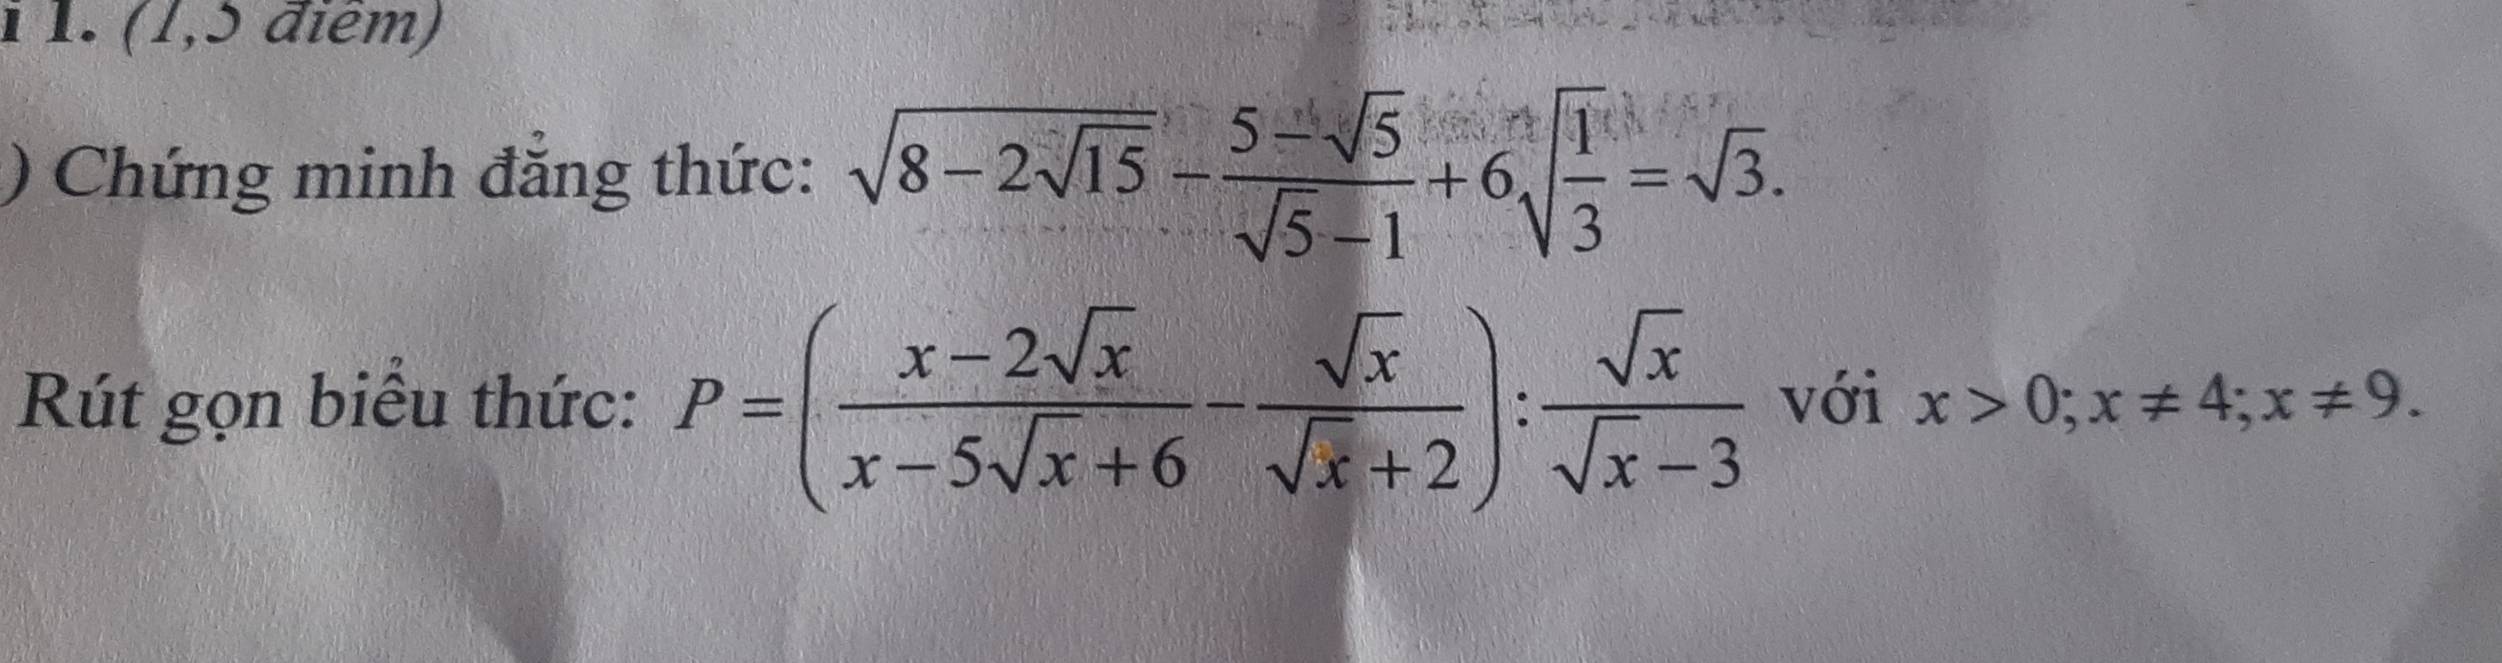 i 1. (1,5 điểm)
) Chứng minh đẳng thức: √(8 − 2√15) − (5 − √5)/(√5 − 1) + 6√(1/3) = √3.
Rút gọn biểu thức: P = ((x − 2√x)/(x − 5√x + 6) − √x/(√x + 2)) : √x/(√x − 3) với x > 0; x ≠ 4; x ≠ 9.